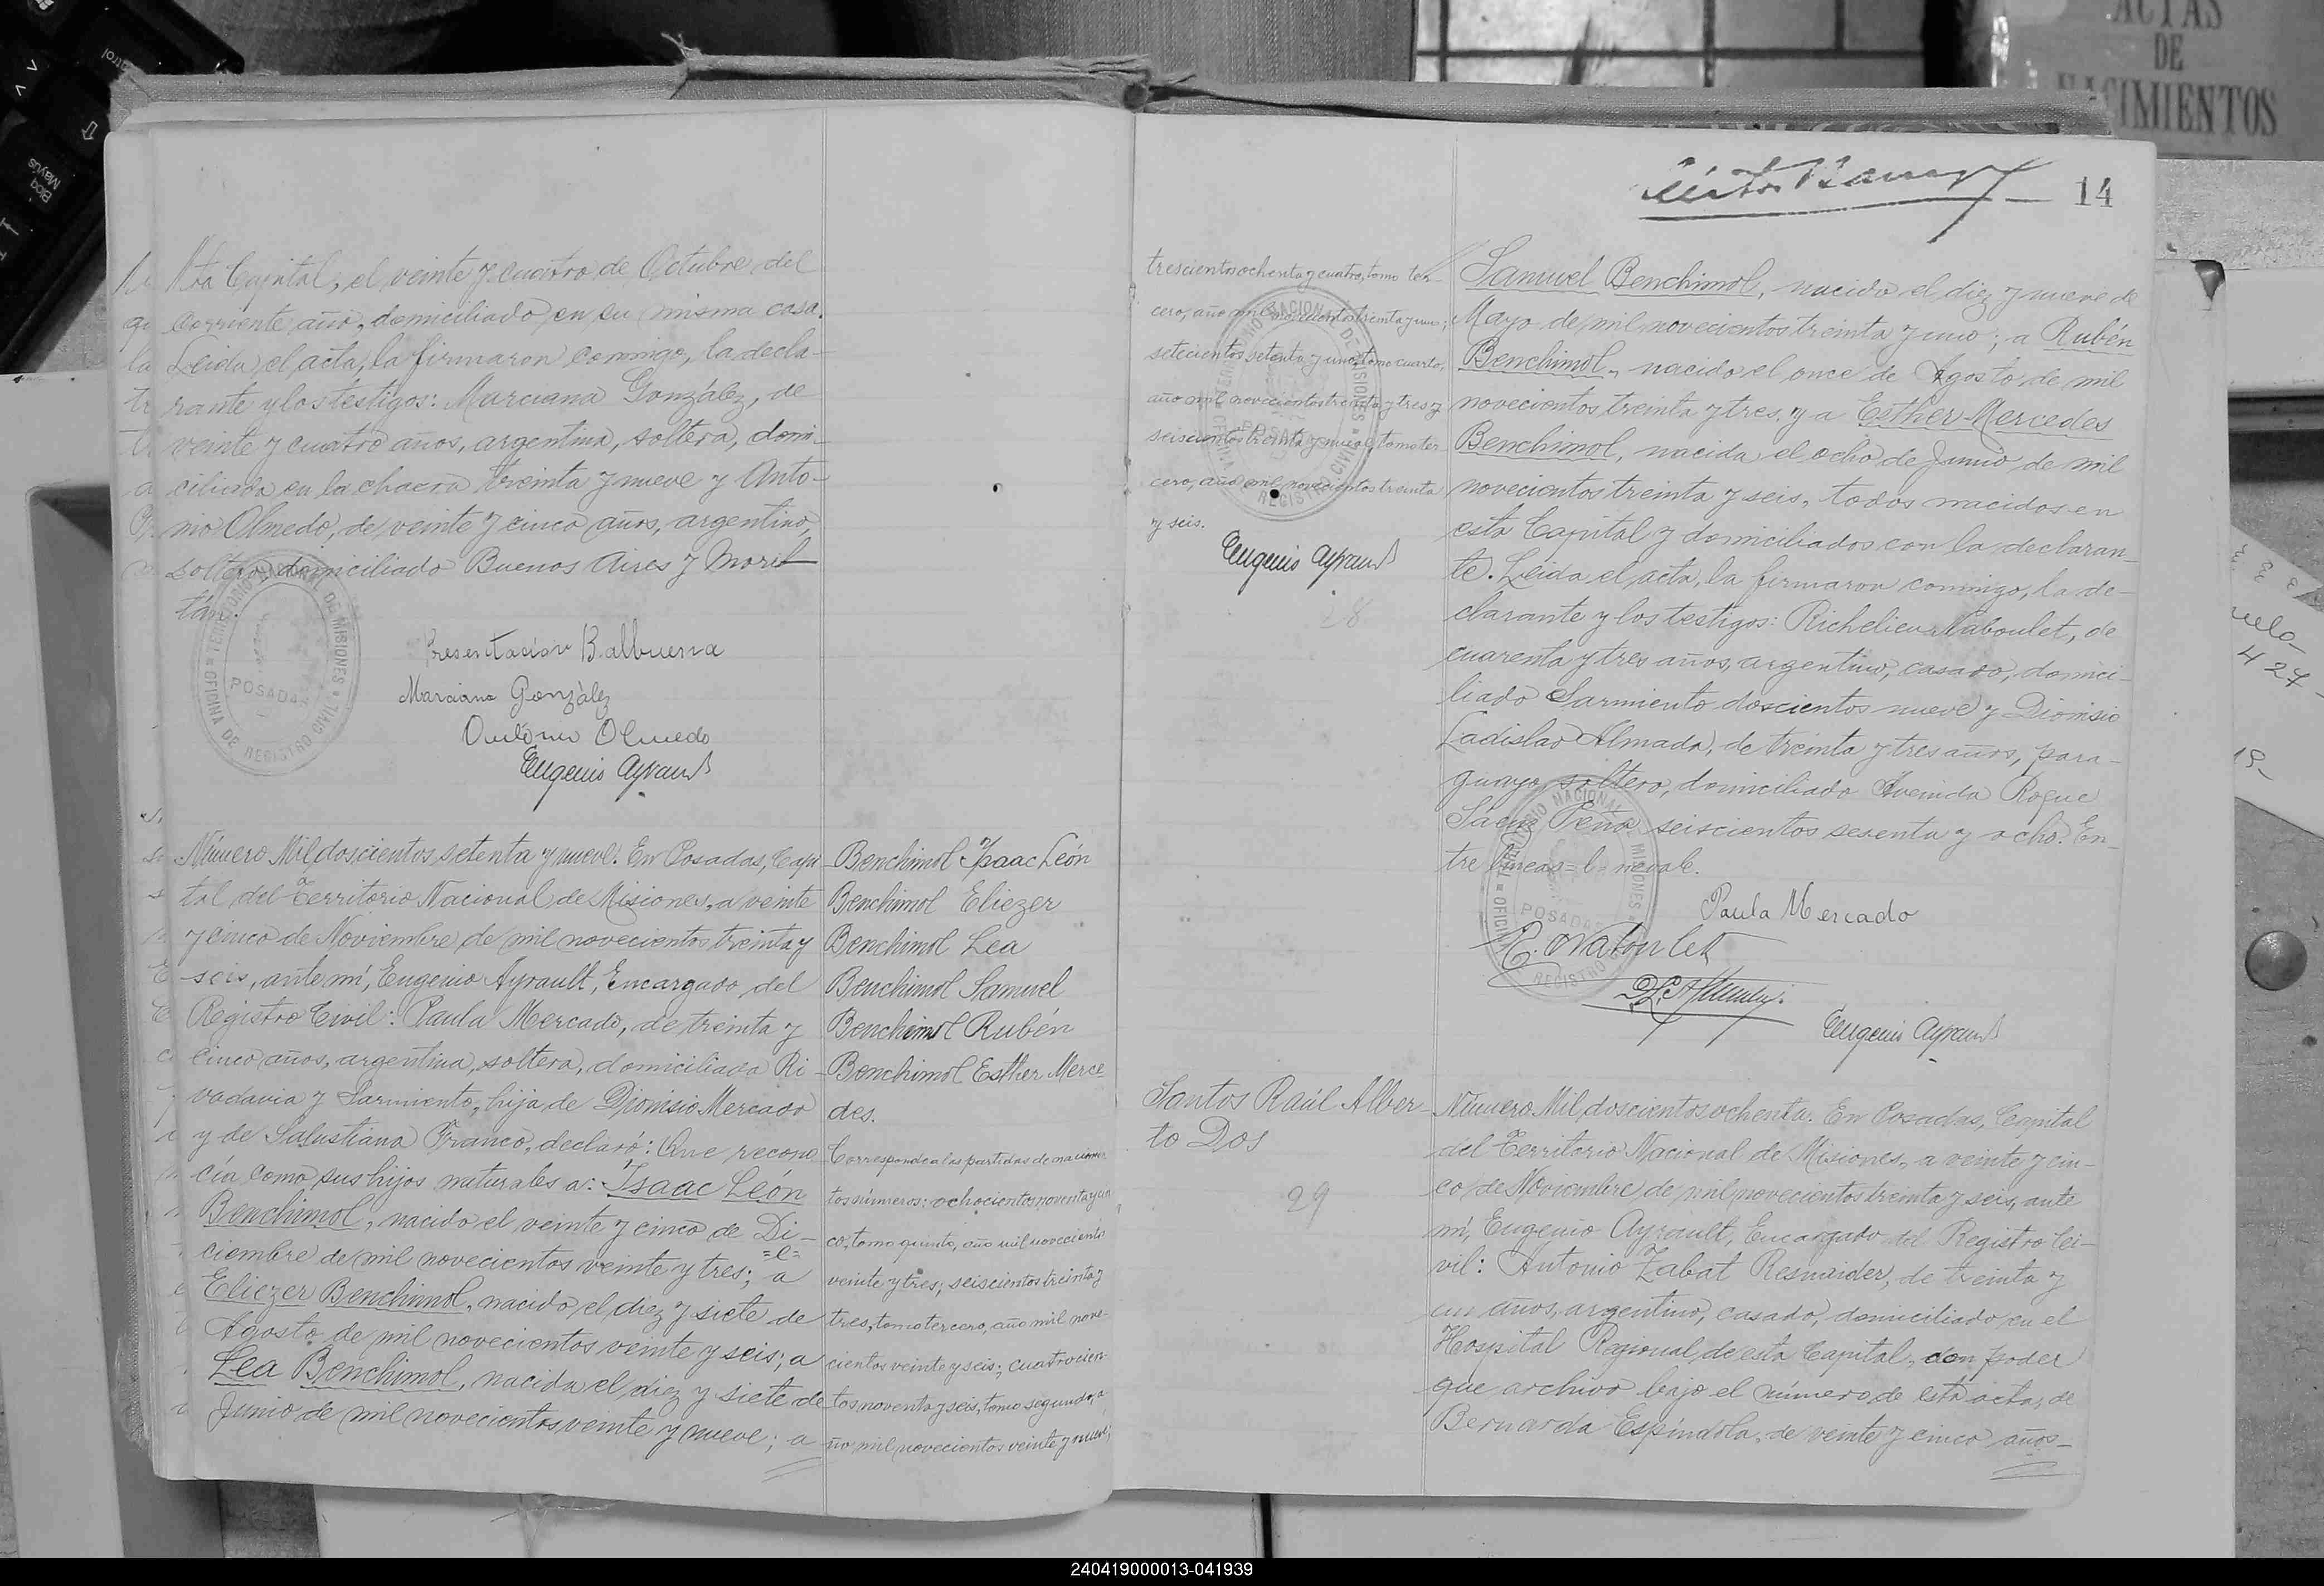 ACTAS
DE
NACIMIENTOS
Control
Bloq
Mayús
ta Capital, el veinte y cuatro de Octubre del
corriente año, domiciliado en su misma casa.
Leida el acta, la firmaron conmigo, la decla-
rante y los testigos: Marciana González, de
veinte y cuatro años, argentina, soltera, domi-
ciliada en la chacra treinta y nueve y Anto-
nio Olmedo, de veinte y cinco años, argentino,
soltero, domiciliado Buenos Aires y Morit
tán.
Presentación Balbuena
Marciana González
Antonio Olmedo
Eugenio Ayrault
TERRITORIO NACIONAL DE MISIONES
POSADAS
OFICINA DE REGISTRO CIVIL
Número Mil doscientos setenta y nueve. En Posadas, Capi
tal del Territorio Nacional de Misiones, a veinte
y cinco de Noviembre de mil novecientos treinta y
seis, ante mí, Eugenio Ayrault, Encargado del
Registro Civil: Paula Mercado, de treinta y
cinco años, argentina, soltera, domiciliada Ri-
vadavia y Sarmiento, hija de Dionisio Mercado
y de Salustiana Franco, declaró: Que recono
cía como sus hijos naturales a: Isaac León
Benchimol, nacido el veinte y cinco de Di-
=l=
ciembre de mil novecientos veinte y tres; a
Eliezer Benchimol, nacido el diez y siete de
Agosto de mil novecientos veinte y seis; a
Lea Benchimol, nacida el diez y siete de
Junio de mil novecientos veinte y nueve; a
Benchimol Isaac León
Benchimol Eliezer
Benchimol Lea
Benchimol Samuel
Benchimol Rubén
Benchimol Esther Merce
des.
Corresponde a las partidas de nacimien
tos números: ochocientos noventa y cin
co, tomo quinto, año mil novecientos
veinte y tres; seiscientos treinta y
tres, tomo tercero, año mil nove-
cientos veinte y seis; cuatrocien-
tos noventa y seis, tomo segundo, a
ño mil novecientos veinte y nueve;
14
trescientos ochenta y cuatro, tomo ter-
cero, año mil novecientos treinta y uno;
setecientos setenta y uno, tomo cuarto,
año mil novecientos treinta y tres y
seiscientos treinta y nueve, tomo ter
cero, año mil novecientos treinta
y seis.
Eugenio Ayrault
28
Samuel Benchimol, nacido el diez y nueve de
Mayo de mil novecientos treinta y uno; a Rubén
Benchimol, nacido el once de Agosto de mil
novecientos treinta y tres y a Esther Mercedes
Benchimol, nacida el ocho de Junio de mil
novecientos treinta y seis, todos nacidos en
esta Capital y domiciliados con la declaran-
te. Leida el acta, la firmaron conmigo, la de-
clarante y los testigos: Richelieu Naboulet, de
cuarenta y tres años, argentino, casado, domici-
liado Sarmiento doscientos nueve y Dionisio
Ladislao Almada, de treinta y tres años, para-
guayo, soltero, domiciliado Avenida Roque
Saenz Peña seiscientos sesenta y ocho. En-
tre líneas=l=
Paula Mercado
R. Naboulet
Eugenio Ayrault
TERRITORIO NACIONAL DE MISIONES
POSADAS
OFICINA DE REGISTRO CIVIL
Santos Raúl Alber-
to Dos
29
Número Mil doscientos ochenta. En Posadas, Capital
del Territorio Nacional de Misiones, a veinte y cin-
co de Noviembre de mil novecientos treinta y seis, ante
mí, Eugenio Ayrault, Encargado del Registro Ci-
vil: Antonio Zabat Resnaider, de treinta y
un años, argentino, casado, domiciliado en el
Hospital Regional de esta Capital, con poder
que archivo bajo el número de esta acta, de
Bernarda Espíndola, de veinte y cinco años-
427
240419000013-041939